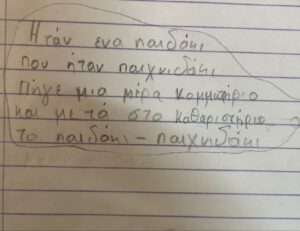 Ηταν ενα παιδάκι
που ήταν παιχνιδάκι
Πήγε μια μέρα κομμωτήριο
και με τά στο καθαριστήριο
το παιδάκι - παιχνιδάκι